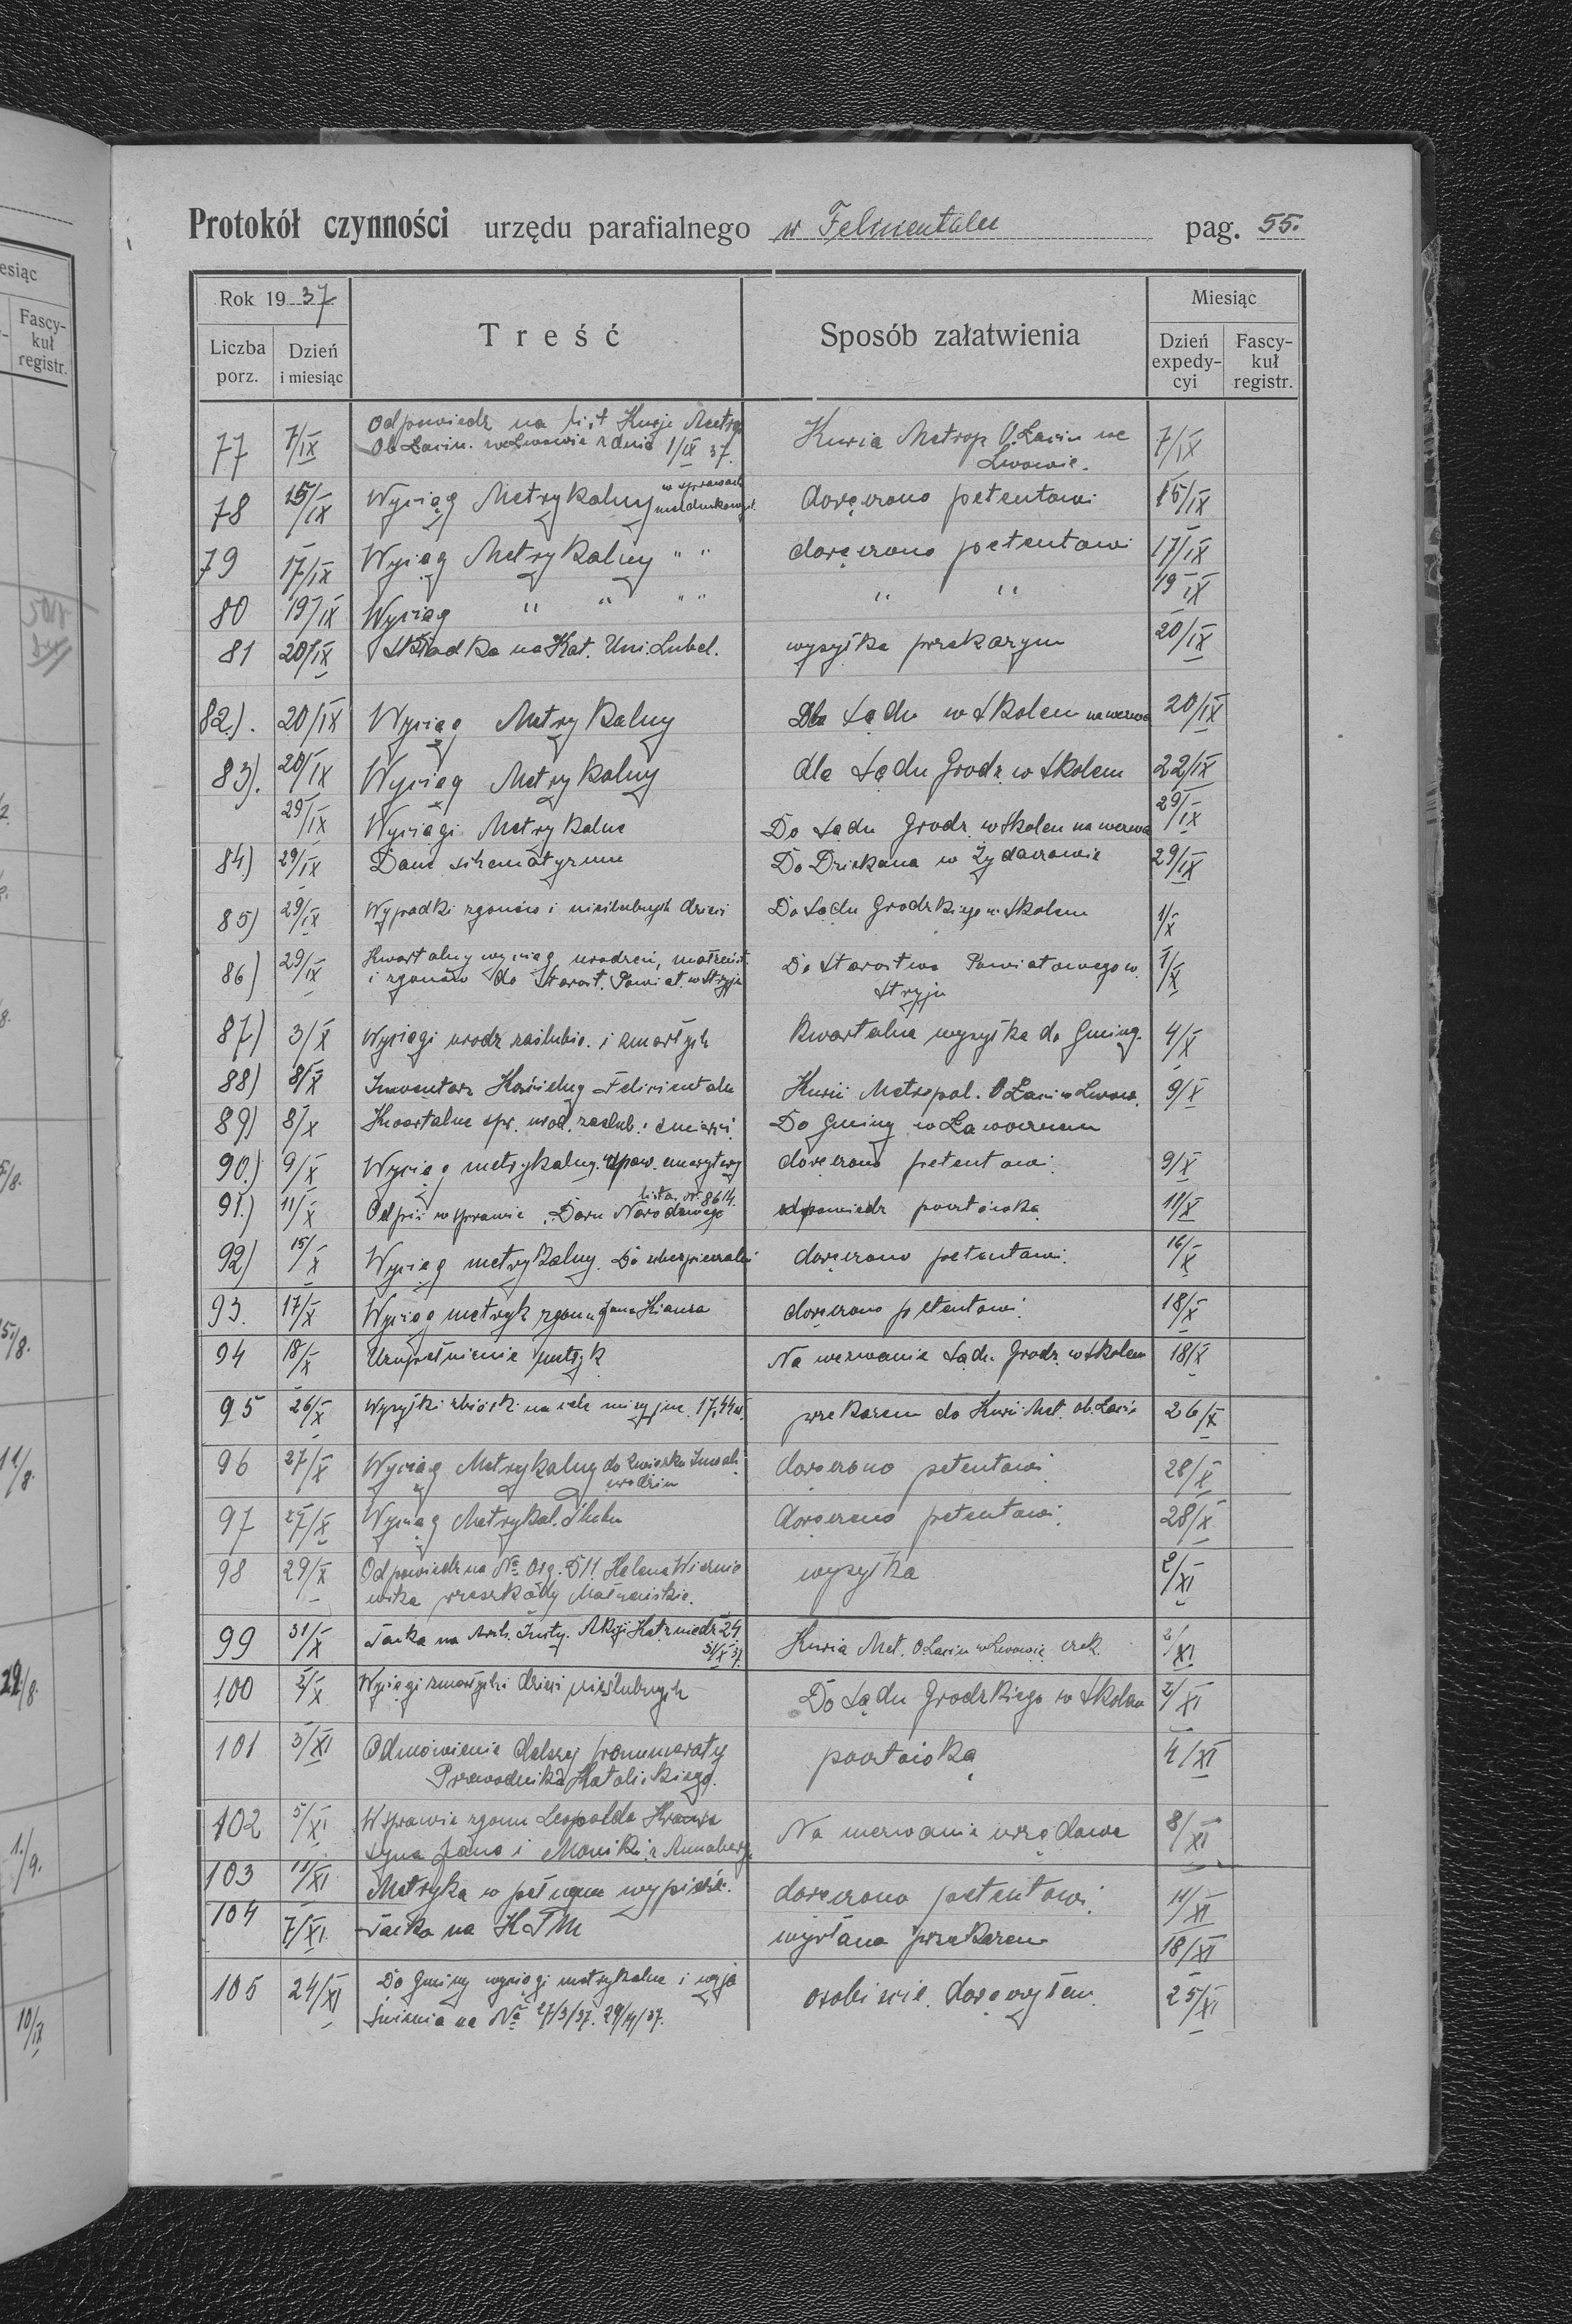 Protokół czynności urzędu parafialnego w Felicientalu pag. 55.
Rok 1937
Miesiąc
Liczba porz.
Dzień i miesiąc
Treść
Sposób załatwienia
Dzień expedycyi
Fascykuł registr.
77 7/IX Odpowiedz na list Kurje Metrop. Kuria Metrop O. Łacin we 7/IX
Ob Łacin. we Lwowie z dnia 1/IX 37. Lwowie.
78 15/IX Wyciąg Metrykalny w sprawach doręczono petentowi 15/IX
79 17/IX Wyciąg Metrykalny " " doręczono petentowi 17/IX
80 19/IX Wyciąg " " " " " " 19 IX
81 20/IX Składka na Kat. Uni. Lubel. wysyłka przekazym 20/IX
82). 20/IX Wyciąg Metrykalny Dla Sądu w Skolem na wezwa 20/IX
83). 20/IX Wyciąg Metrykalny dla Sądu Grodz. w Skolem 22/IX
29/IX Wyciągi Metrykalne Do Sądu Grodz. w Skolem na wezwa 29/IX
84) 29/IX Dane schematyzmu Do Dziekana w Żydaczowie 29/IX
85) 29/IX Wypadki zgonów i nieślubnych dzieci Do Sądu Grodzkiego w Skolem 1/X
86) 29/IX Kwartalny wyciąg urodzeń, małżeńst. Do Starostwa Powiatowego w 1/X
i zgonów do Starost. Powiat. w Stryju Stryju
87) 3/X Wyciągi urodz zaślubio. i zmarłych Kwartalna wysyłka do Gminy. 4/X
88) 8/X Inwentarz Kościelny Felicientalu Kurii Metropol. O Łaci w Lwow. 9/X
89) 8/X Kwartalne spr. urod. zaślub. i śmierci. Do Gminy w Ławocznem
90.) 9/X Wyciąg metrykalny. w spraw. emerytury doręczono petentowi. 9/X
91.) 11/X Odpis w sprawie "Daru Narodowego lista. nr. 8614. odpowiedz pocztówką 11/X
92) 15/X Wyciąg metrykalny. Do ubezpieczalni doręczono petentowi. 16/X
93. 17/X Wyciąg metryk zgonu Jana doręczono petentowi. 18/X
94 18/X Uzupełnienie metryk Na wezwanie Sądu Grodz. w Skolem 18/X
95 26/X Wysyłki zbiórki na cele misyjne. 17,44 zł. przekazem do Kurii Met. ob. Łaciń 26/X
96 27/X Wyciąg Metrykalny do Związku Inwali. doręczono petentowi 28/X
urodzin
97 27/X Wyciąg Metrykal. Ślubu doręczono petentowi. 28/X
98 29/X Odpowiedz na No Org. 511 Helena wysyłka 2/XI
przeszkody Małżeńskie.
99 31/X Tacka na Arch. Insty. Akcji Kat. z niedz 24 Kuria Met. O. Łacin w Lwowie czek. 2/XI
31/X 37.
100 2/X Wyciągi zmarłych i dzieci nieślubnych Do Sądu Grodzkiego w Skolem 2/XI
101 3/XI Odmówienie dalszej prenumeraty pocztówką 4/XI
Przewodnika Katolickiego.
102 5/XI W sprawie zgonu Leopolda Na wezwanie urzędowe 8/XI
syna Jana i Moniki z Annabergu
103 11/XI Metryka w pełnym wypisie. doręczono petentowi. 11/XI
104 7/XI Tacka na KTM wysłana przekazem 18/XI
105 24/XI Do Gminy wyciągi metrykalne i wyja osobiście doręczyłem. 25/XI
śnienia na No 27/3/37. 29/IV/37.